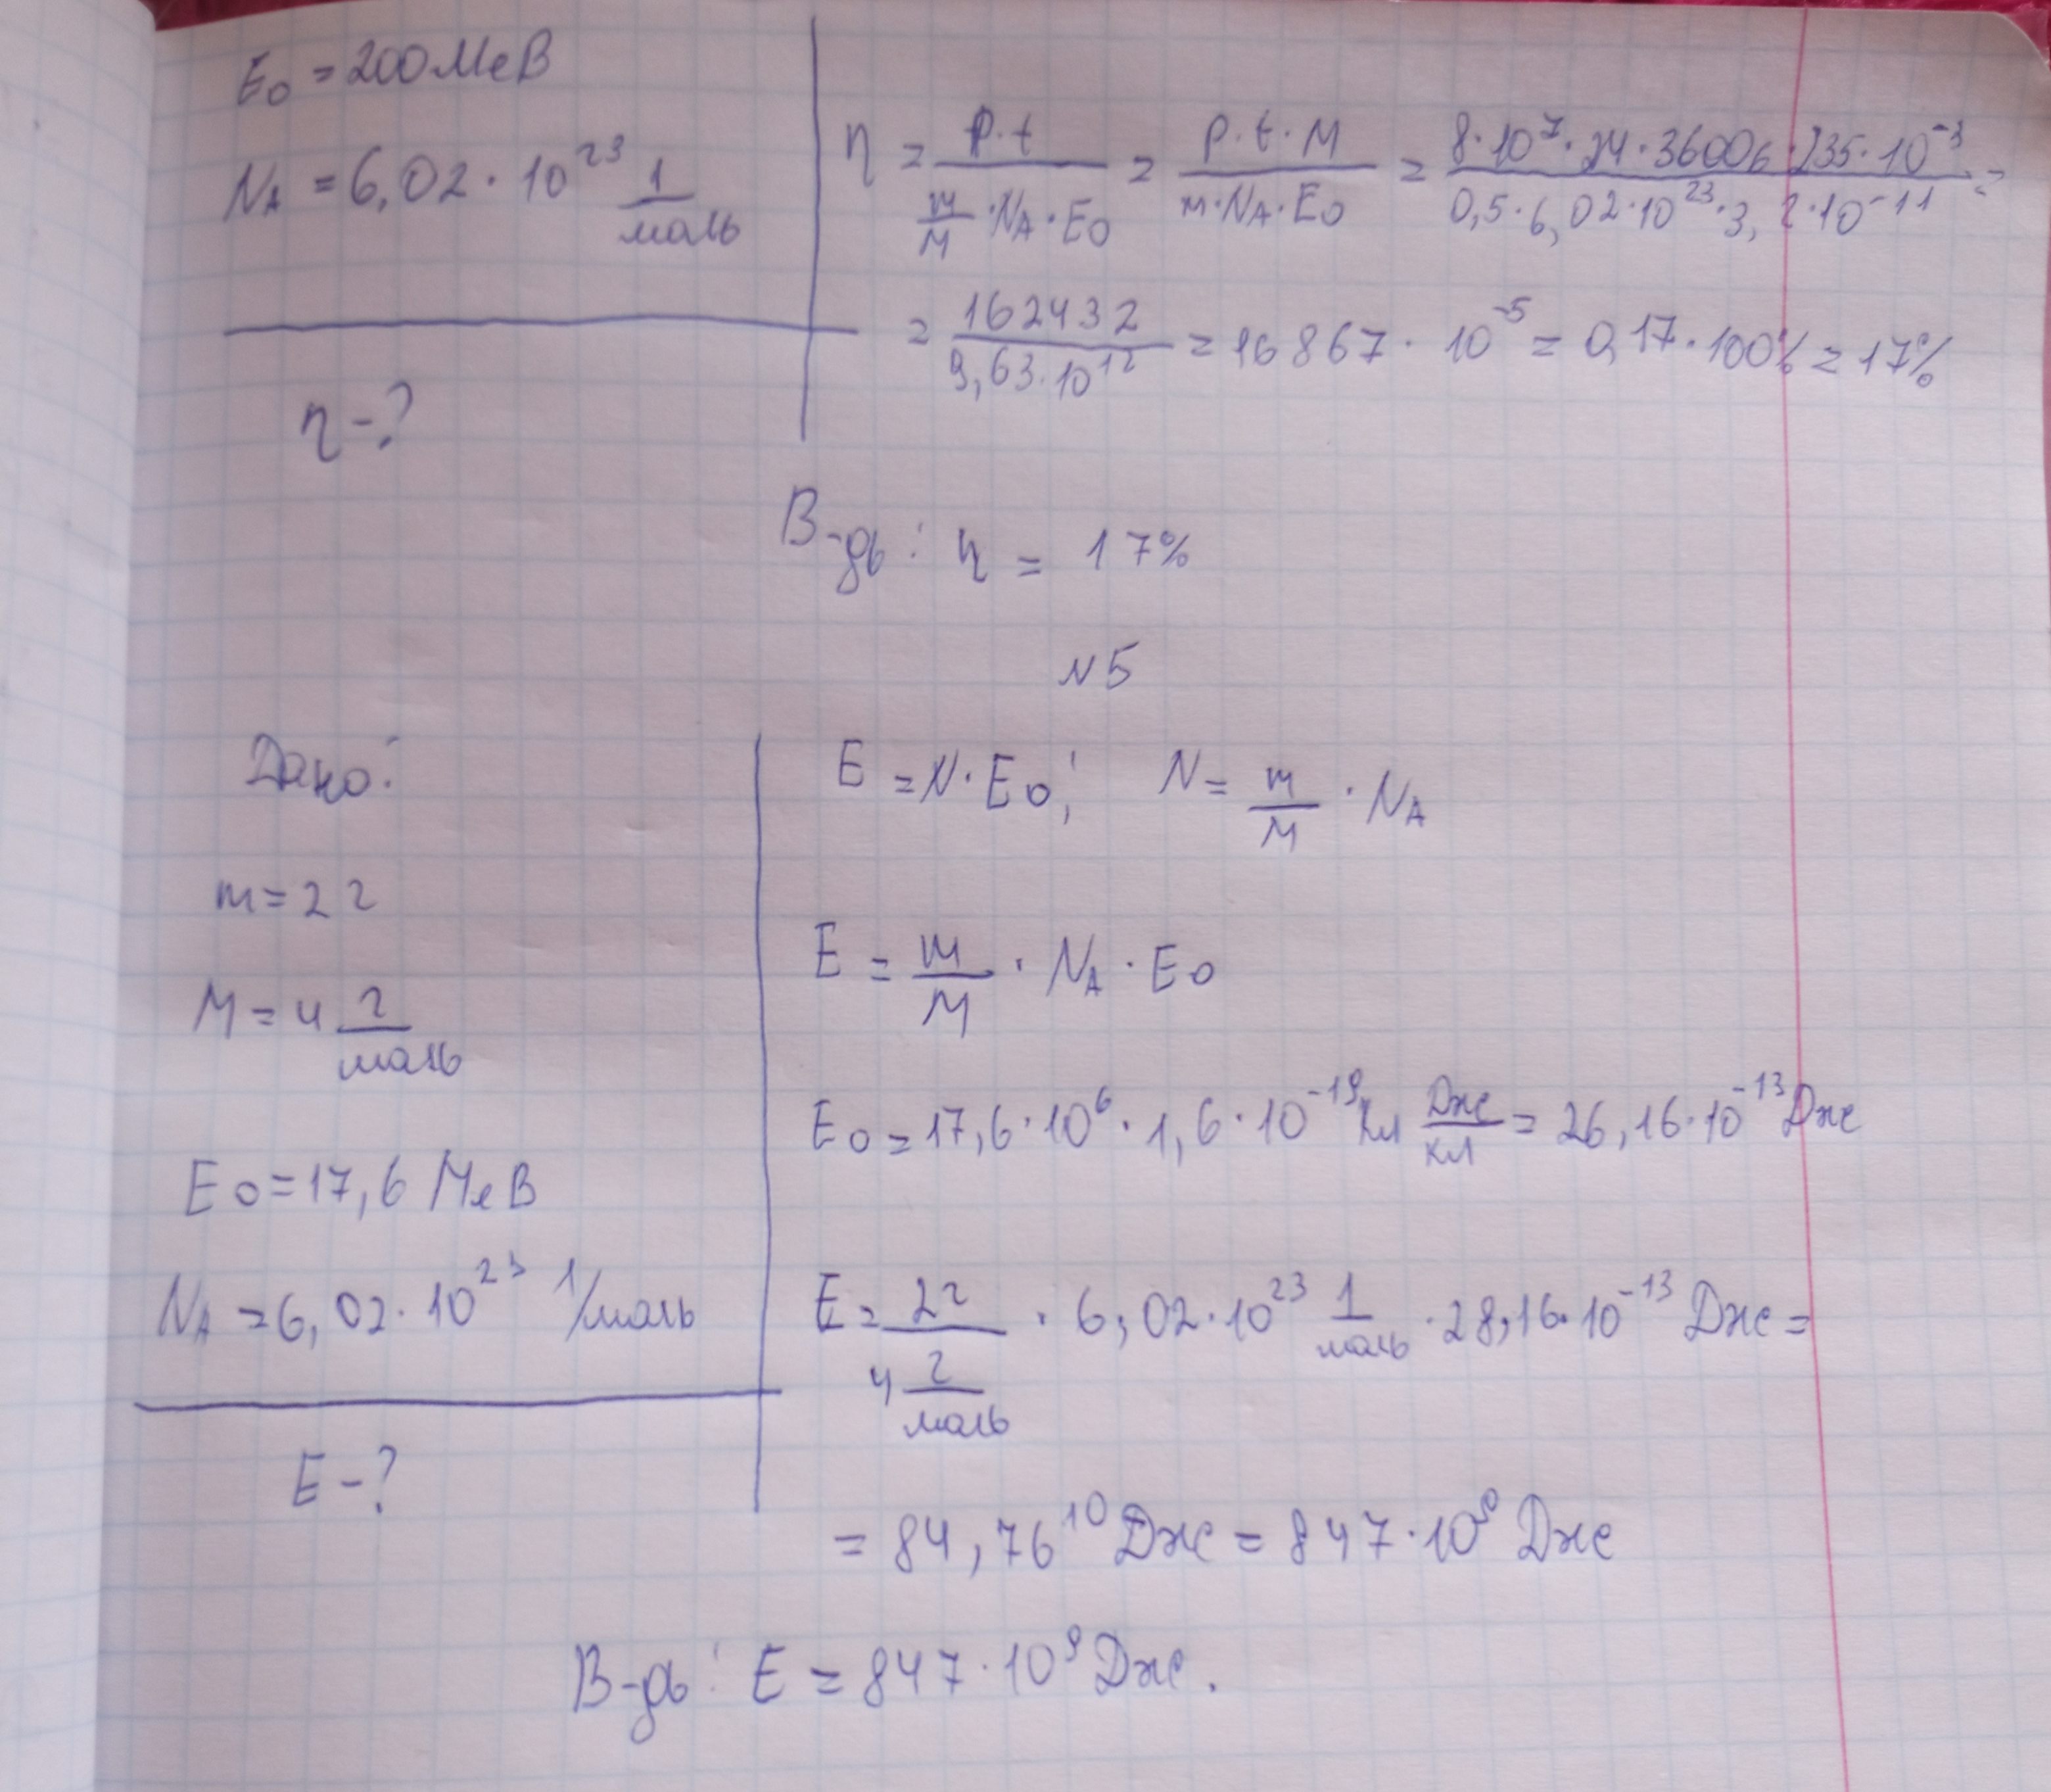 E₀ = 200 МеВ
N_A = 6,02 · 10²³ 1/моль
η - ?
η = P·t / (m/M · N_A · E₀) = P·t·M / (m·N_A·E₀) = 8·10⁷·24·3600с·235·10⁻³ / (0,5·6,02·10²³·3,2·10⁻¹¹) =
= 162432 / (9,63·10¹²) = 16867 · 10⁻⁵ = 0,17 · 100% = 17%
В-дь: η = 17%
N5
Дано:
m = 2 г
M = 4 г/моль
E₀ = 17,6 МеВ
N_A = 6,02 · 10²³ 1/моль
E - ?
E = N · E₀; N = m/M · N_A
E = m/M · N_A · E₀
E₀ = 17,6 · 10⁶ · 1,6 · 10⁻¹⁹ Кл Дж/Кл = 26,16 · 10⁻¹³ Дж
E = 2г / 4 г/моль · 6,02 · 10²³ 1/моль · 28,16 · 10⁻¹³ Дж =
= 84,76¹⁰ Дж = 847 · 10⁹ Дж
В-дь: E = 847 · 10⁹ Дж.